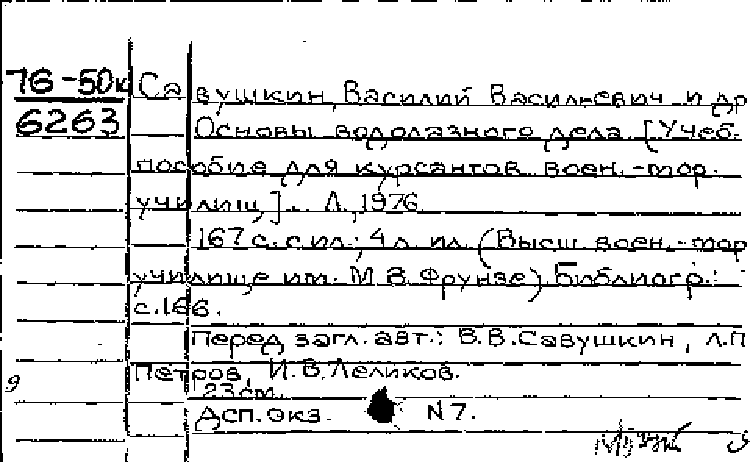 76-50к Савушкин, Василий Васильевич и др
6263 Основы водолазного дела. [Учеб.
пособие для курсантов воен.-мор.
училищ]. Л., 1976
167 с. с ил.; 4 л. ил. (Высш. воен.-мор
училище им. М.В. Фрунзе) Библиогр.:
с. 166.
Перед загл. авт.: В.В. Савушкин, Л.П
Петров, И.В. Леликов.
9 23 см.
Дсп. окз. N 7.